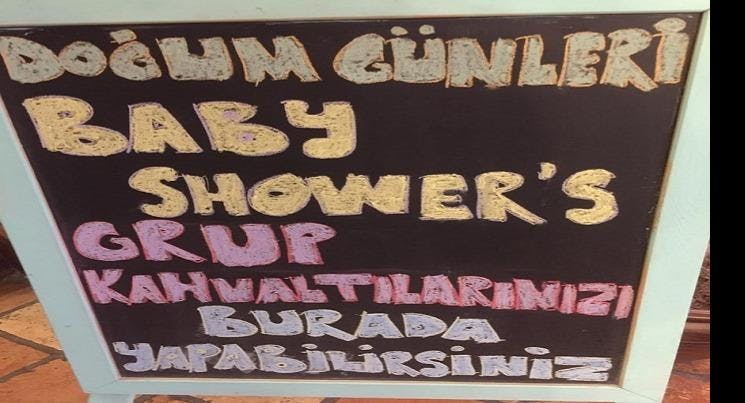 DOĞUM GÜNLERİ
BABY
SHOWER'S
GRUP
KAHVALTILARINIZI
BURADA
YAPABİLİRSİNİZ